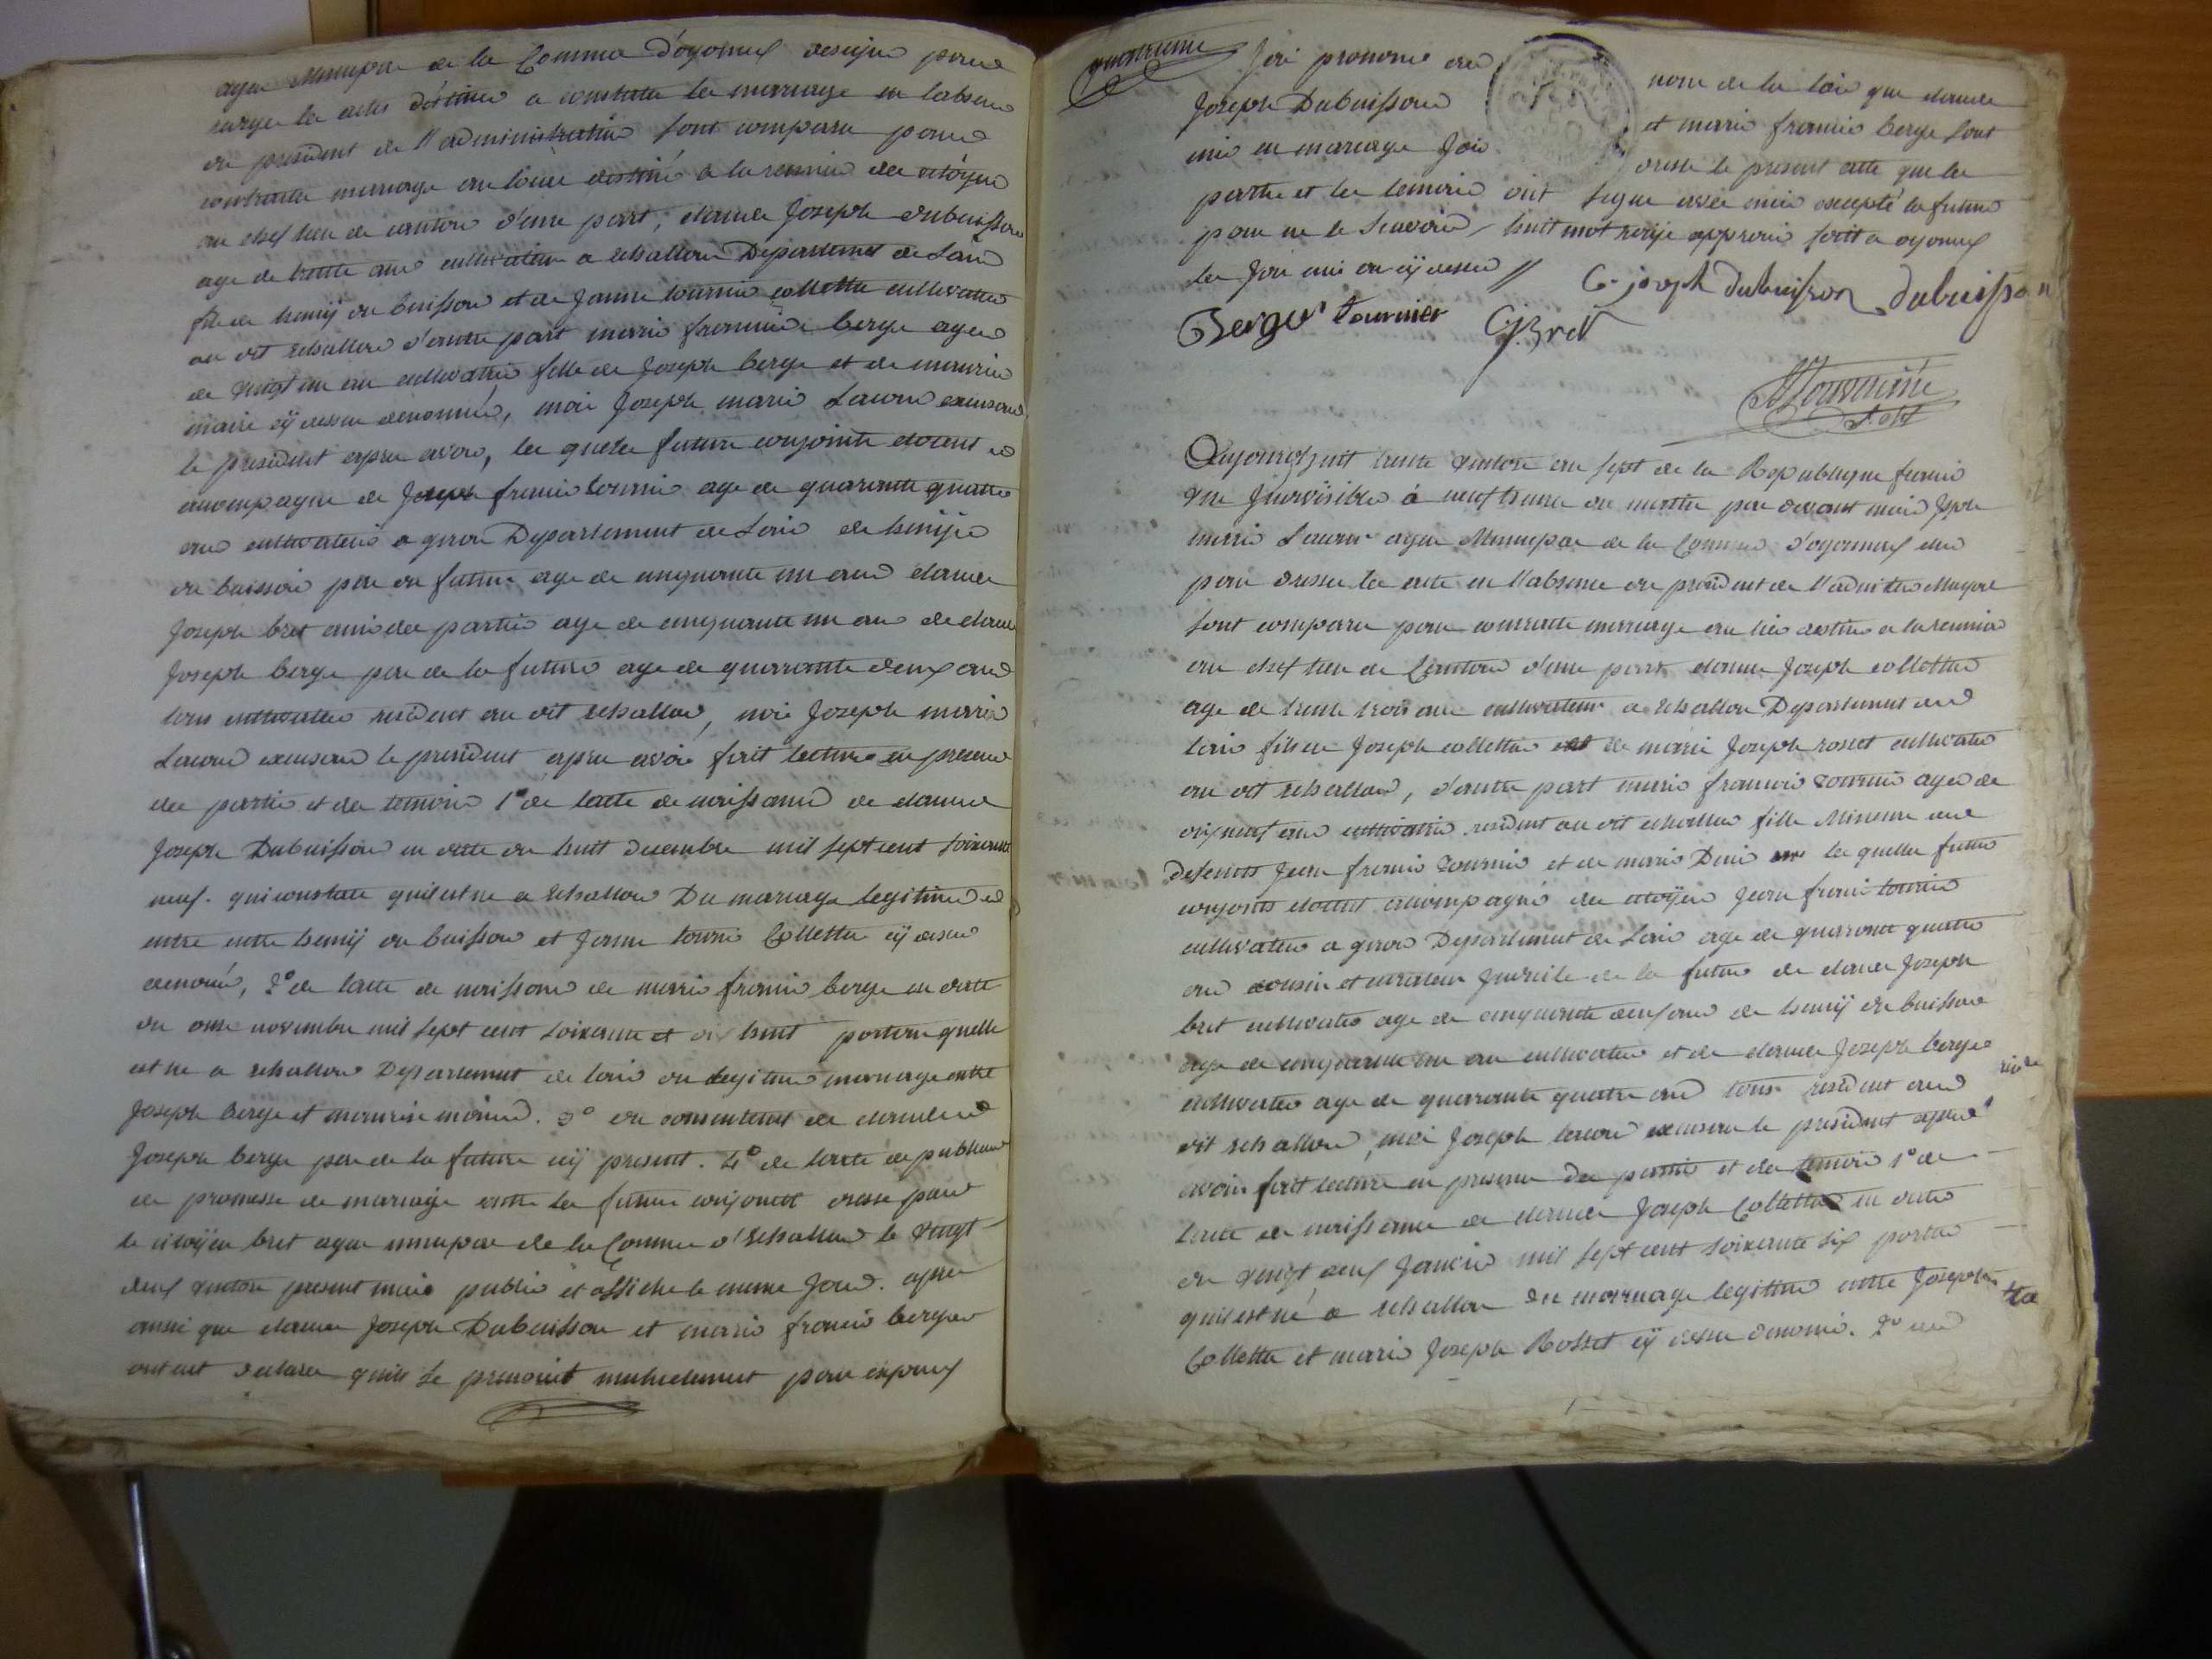 agen Municipal de la Commune d'oyonnax designe pour
les actes destinés a constater les mariage en labsence
du president de l'administration sont comparu pour
contracter mariage au lieu destiné a la reunion des citoyen
au chef lieu de canton d'une part, claude Joseph dubuisson
age de trente ans cultivateur a echallon Departement de Lain
fils de henrij du buisson et de Janne tournier collette cultivateur
au dit echallon d'autre part marie francoise berger agee
de vingt un an cultivatrice fille de Joseph berger et de maurise
cij dessus denommés, moi Joseph marie Lacour
le president apres avoir, les quels futurs conjoints etoient
acompagne de Joseph francois tournier age de quarante quatre
ans cultivateur a giron Departement de Lain de henrij
du buisson pere du futur age de cinquante un ans claude
Joseph bret ami des parties age de cinquante un ans de claude
Joseph berger pere de la future age de quarante deux ans
tous cultivateur resident au dit echallon, moi Joseph marie
Lacour le president apres avoir fait lecture en presence
des parties et des temoins 1º de lacte de naissance de claude
Joseph Dubuisson en date du huit decembre mil sept cent soixante
neuf. qui constate quil est ne a echallon Du mariage legitime
entre entre henrij du buisson et Janne tournier Collette cij dessus
denomé, 2º de lacte de naissance de marie francoise berger en date
du onze novembre mil sept cent soixante et dix huit portant quelle
est ne a echallon Departement de lain du legitime mariage entre
Joseph berger et maurise . 3º du consentement de claude
Joseph berger pere de la future cij present. 4º de lacte de publication
de promesse de mariage entre les futurs conjoints dresse par
le citoyen bret agen municipal de la Commune d'Echallon le vingt
deux ventose present mois publié et affiche le meme Jour. apres
aussi que claude Joseph Dubuisson et marie francoise berger
ont eut declaré quils se prenoient mutuellement pour epoux
Jai prononcé au nom de la loi que claude
Joseph Dubuisson et marie francoise berger sont
uni en mariage Jai dressé le present acte que les
parties et les temoins ont signe avec moi excepté la future
pour ne le scavoir, huit mot approuvé fait a oyonnax
les Jour mois an cij dessus //
C. joseph dubuisson dubuisson
Berger tournier C.J. Bret
Aujourdhuit trente ventose an sept de la Republique francoise
une Jndivisible à neuf heure du matin par devant moi Jph
marie Lacour agen Municipal de la Commune d'oyonnax
pour dresser les acte en l'absence du president de l'administration Municipal
sont comparu pour contracter mariage au lieu destiné a la reunion
au chef lieu de Canton d'une part claude Joseph collette
age de trente trois ans cultivateur a Echallon Departement de
lain fils de Joseph collette et de marie Joseph rosset cultivateur
au dit echallon, d'autre part marie francoise tournier agee de
dix neuf ans cultivatrice resident au dit echallon fille Mineure de
defunts Jean francois tournier et de marie les quelles futur
conjoints etoient acompagné des citoyen Jean francois tournier
cultivateur a giron Departement de Lain age de quarante quatre
ans cousin et curateur de la future de claude Joseph
bret cultivateur age de cinquante deux ans de henrij du buisson
age de cinquante un an cultivateur et de claude Joseph berger
cultivateur age de quarante quatre ans tous resident au
dit echallon, moi Joseph lacour le president apres
avoir fait lecture en presence des partie et des temoins 1º de
lacte de naissance de claude Joseph Collette en date
du vingt deux Janvier mil sept cent soixante six portant
quil est né a echallon du mariage legitime entre Joseph
Collette et marie Joseph Rosset cij dessus denomé. 2º de